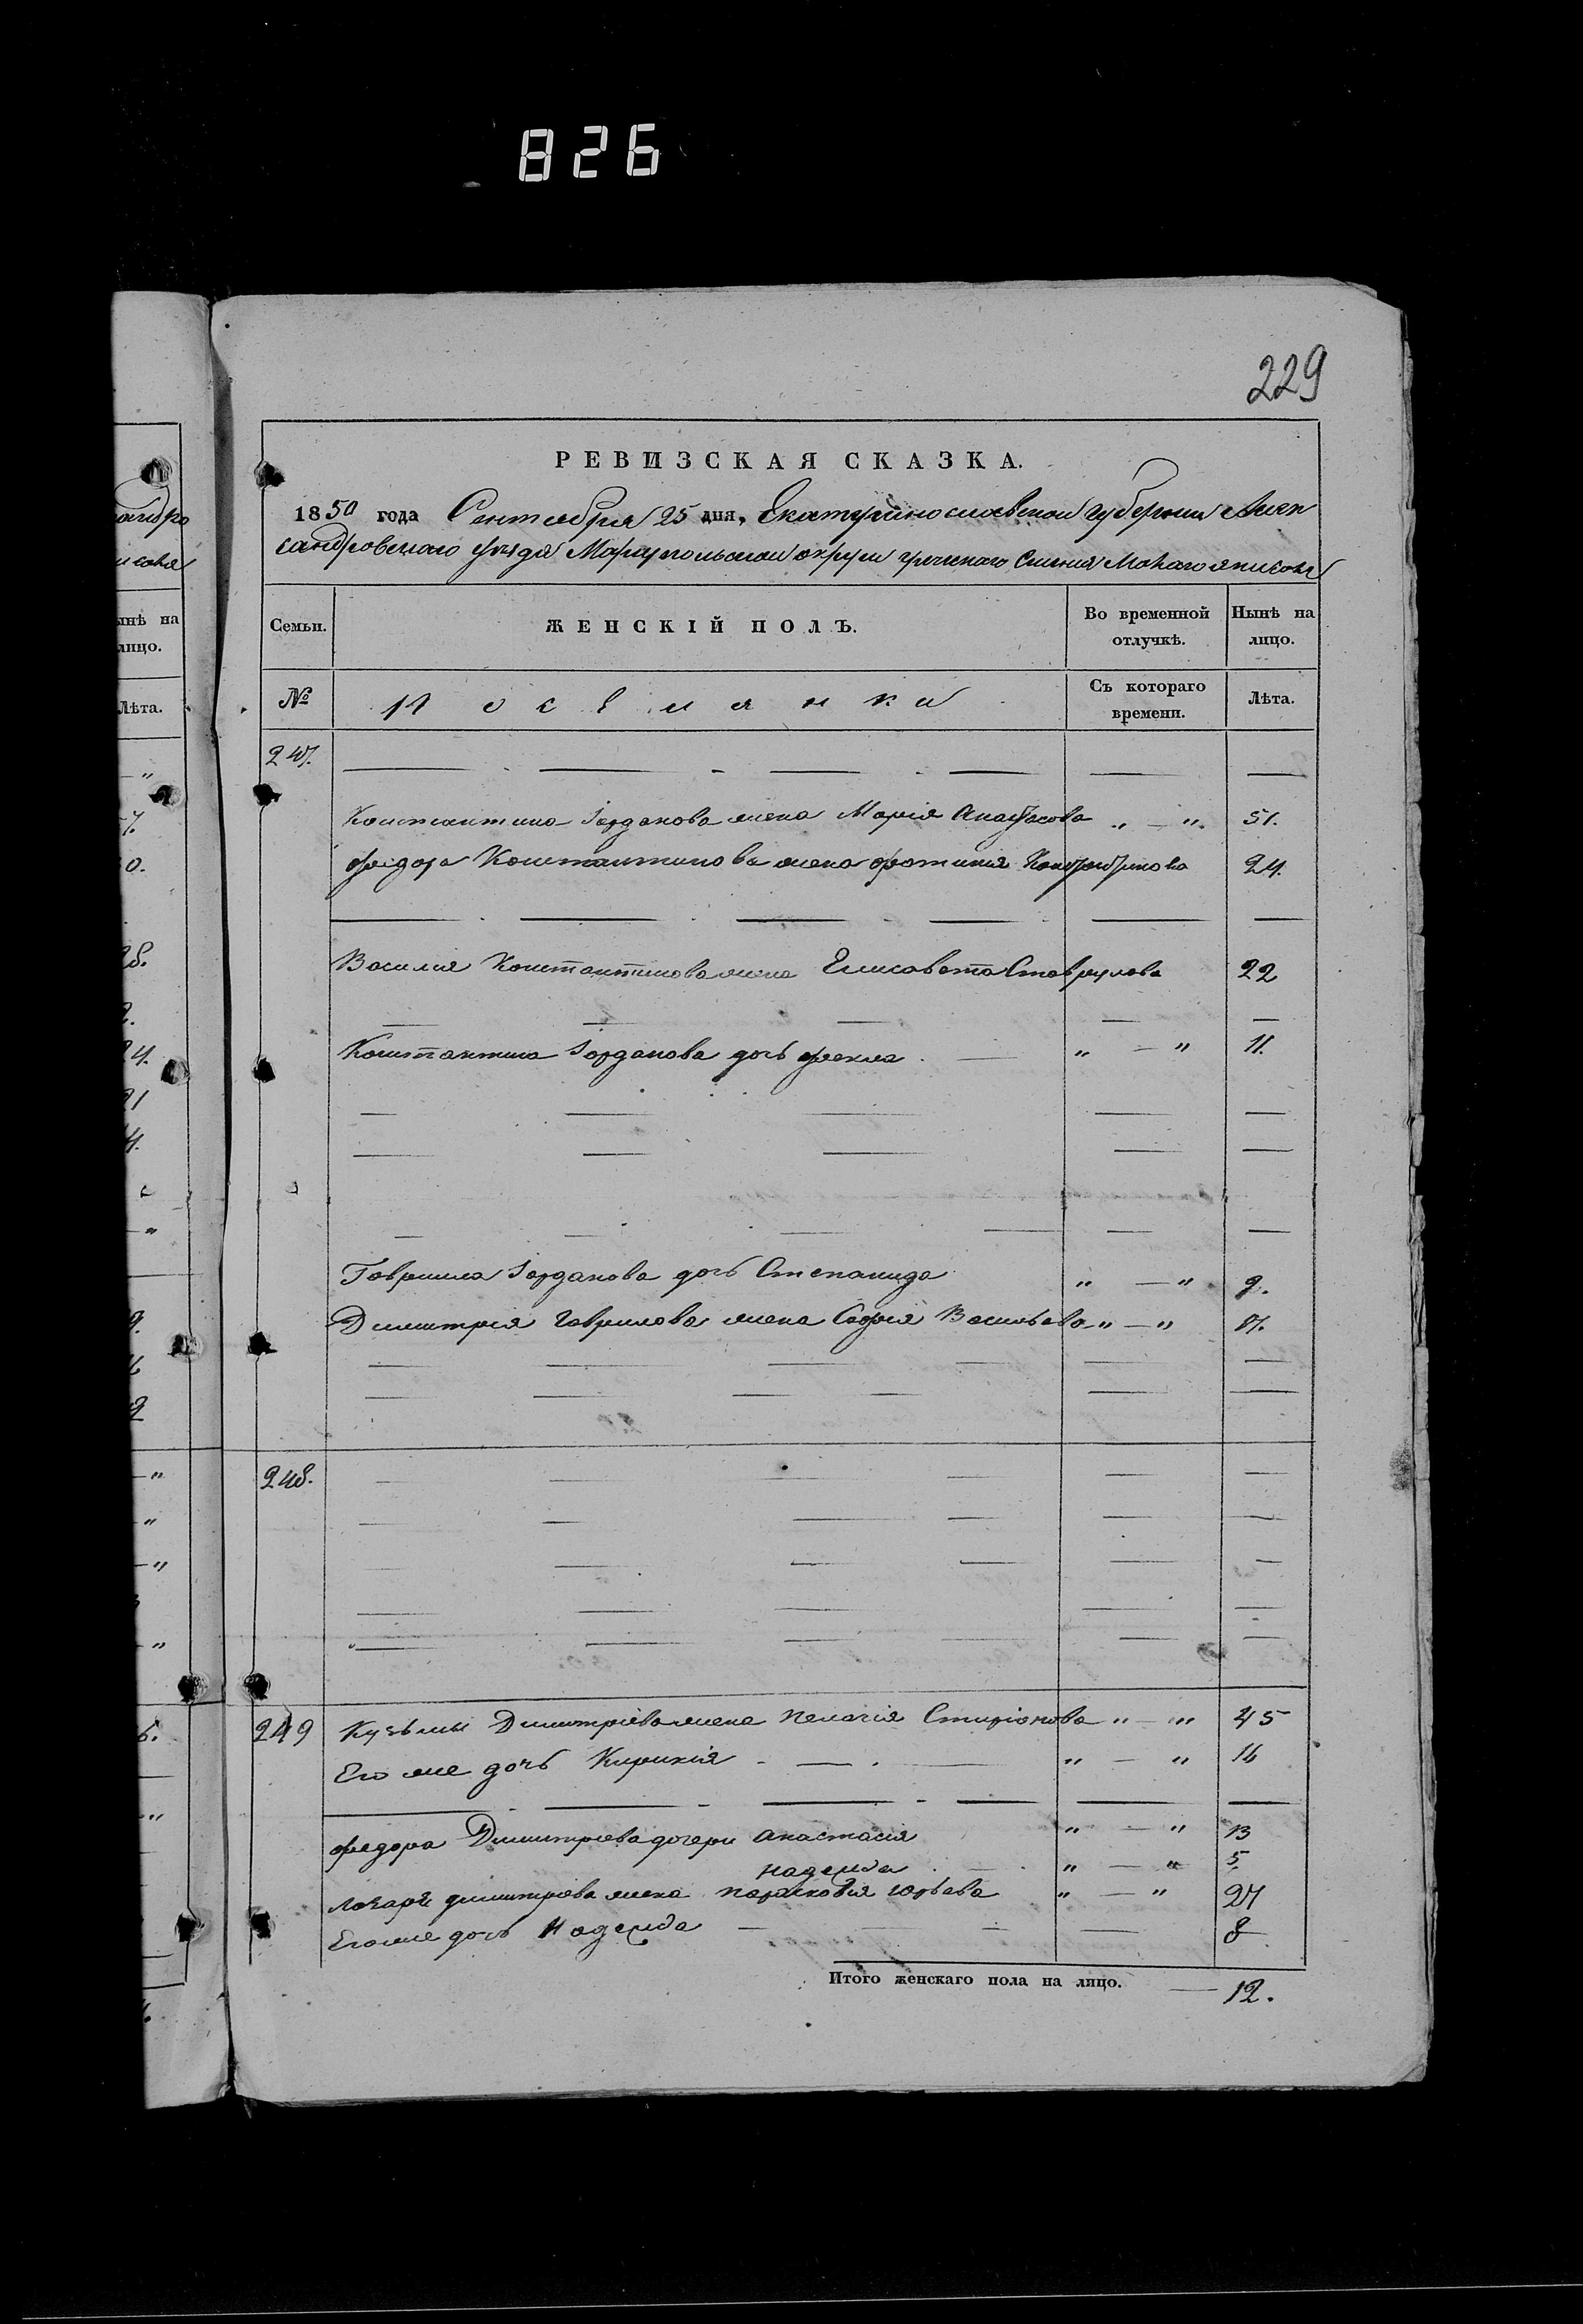 826
229
РЕВИЗСКАЯ СКАЗКА.
1850 года Сентября 25 дня, Екатеринославской губернии Алек
сандровского уезда Мариупольскои округи греческого Селения Малаго янисоля
Семьи. ЖЕНСКІЙ ПОЛЪ. Во временной отлучкѣ. Нынѣ на лицо.
№ Поселянки Съ котораго времени. Лѣта.
247.
Константина Іорданова жена Марія Анастасова „ — „ 51.
Феодора Константинова жена Фотинія 24.
Василия Константинова жена Елисавета Ставрулова 22
Константина Іорданова дочь Фекла „ — „ 11.
Гавриила Іорданова дочь Степанида „ — „ 9.
Димитрия Гаврилова жена София Васильева „ — „
248.
249 Кузьмы Димитріева жена Пелагія Спиріонова „ — „ 45
Его же дочь Кирикія „ — „ 16
Федора Димитриева дочери Анастасія „ — „ 13
Надежда „ — „ 5.
Лазаря Димитриева жена Парасковія Юрьева „ — „ 27
Его же дочь Надежда 8
Итого женскаго пола на лицо. — 12.